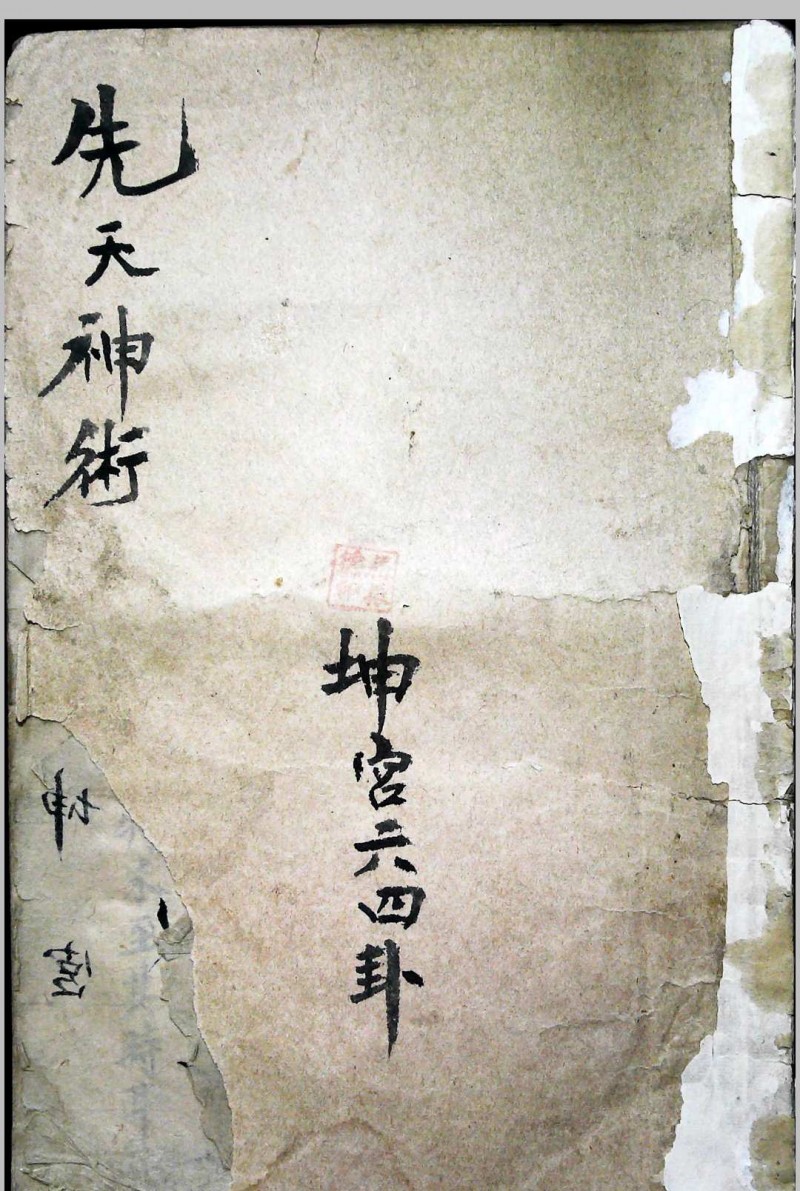 先天神術
坤宮六四卦
坤宮